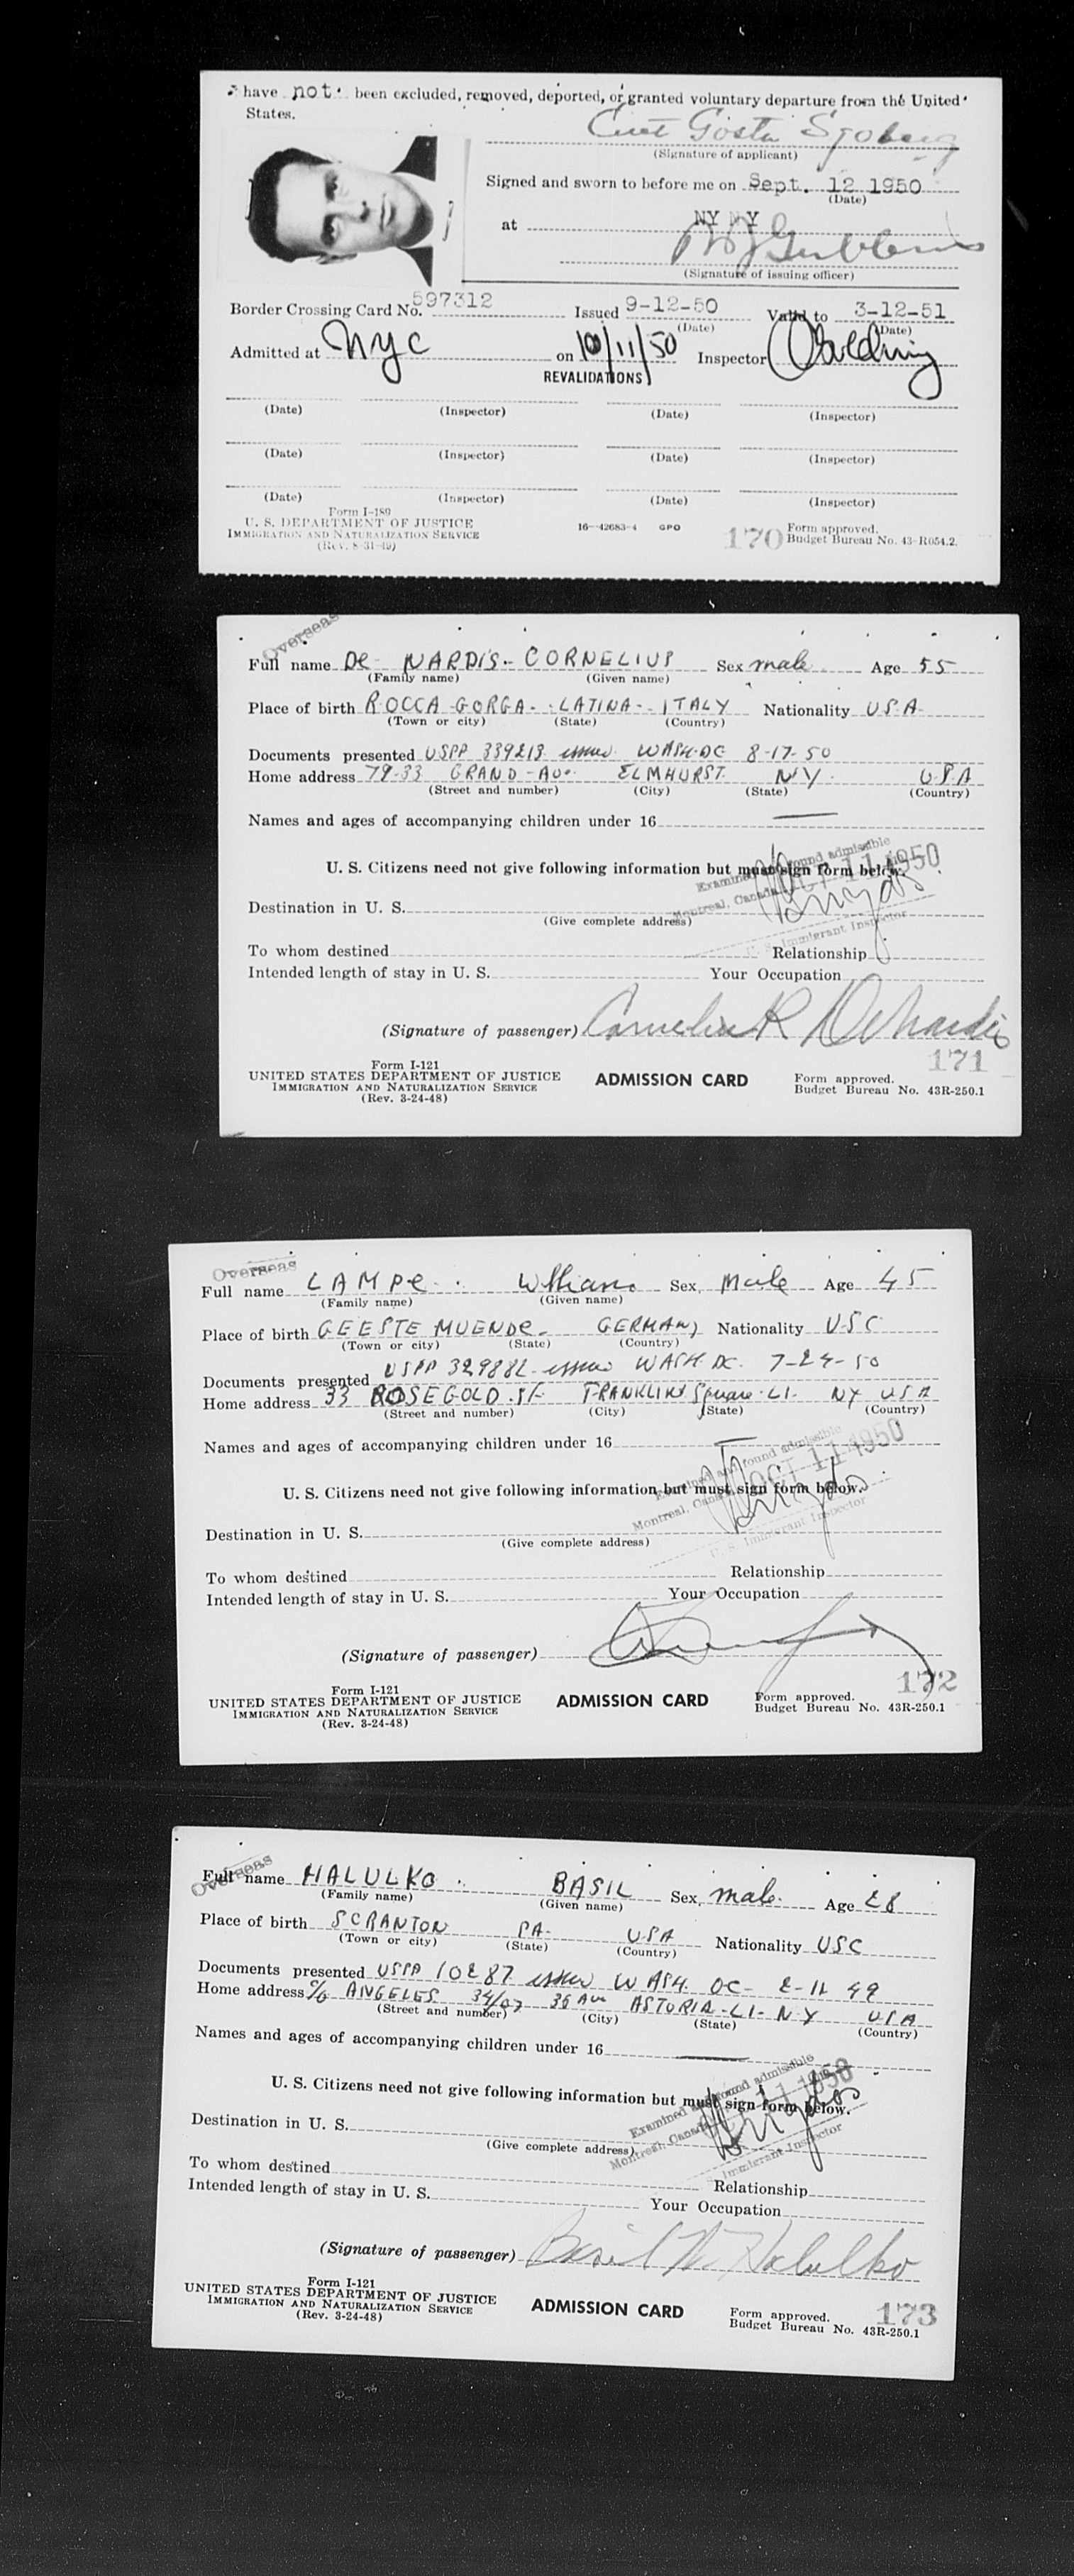 have not been excluded, removed, deported, or granted voluntary departure from the United
States.
Curt Gosta Sjoberg
(Signature of applicant)
Signed and sworn to before me on Sept. 12 1950
(Date)
at NY NY
(Signature of issuing officer)
Border Crossing Card No. 597312 Issued 9-12-50 Valid to 3-12-51
(Date) (Date)
Admitted at NYC on 10/11/50 Inspector
REVALIDATIONS
(Date) (Inspector) (Date) (Inspector)
(Date) (Inspector) (Date) (Inspector)
(Date) (Inspector) (Date) (Inspector)
Form I-189
U. S. DEPARTMENT OF JUSTICE
IMMIGRATION AND NATURALIZATION SERVICE
(Rev. 8-31-49)
16—42683-4 GPO
170
Form approved.
Budget Bureau No. 43-R054.2.
Overseas
Full name De NARDIS - CORNELIUS Sex male Age 55
(Family name) (Given name)
Place of birth ROCCA-GORGA - LATINA - ITALY Nationality USA
(Town or city) (State) (Country)
Documents presented USPP 339213 issued WASH-DC 8-17-50
Home address 79-33 GRAND-AVE. ELMHURST NY USA
(Street and number) (City) (State) (Country)
Names and ages of accompanying children under 16
U. S. Citizens need not give following information but must sign form below.
Examined and found admissible
OCT 11 1950
Montreal, Canada
U. S. Immigrant Inspector
Destination in U. S.
(Give complete address)
To whom destined Relationship
Intended length of stay in U. S. Your Occupation
(Signature of passenger) Cornelius R DeNardis
171
Form I-121
UNITED STATES DEPARTMENT OF JUSTICE
IMMIGRATION AND NATURALIZATION SERVICE
(Rev. 3-24-48)
ADMISSION CARD
Form approved.
Budget Bureau No. 43R-250.1
Overseas
Full name LAMPe William Sex Male Age 45
(Family name) (Given name)
Place of birth GEESTEMUENDe GERMANY Nationality USC
(Town or city) (State) (Country)
Documents presented USPP 329882 issued WASH. DC. 7-24-50
Home address 33 ROSEGOLD St FRANKLIN Square - LI - NY USA
(Street and number) (City) (State) (Country)
Names and ages of accompanying children under 16
U. S. Citizens need not give following information but must sign form below.
Examined and found admissible
OCT 11 1950
Montreal, Canada
U. S. Immigrant Inspector
Destination in U. S.
(Give complete address)
To whom destined Relationship
Intended length of stay in U. S. Your Occupation
(Signature of passenger)
172
Form I-121
UNITED STATES DEPARTMENT OF JUSTICE
IMMIGRATION AND NATURALIZATION SERVICE
(Rev. 3-24-48)
ADMISSION CARD
Form approved.
Budget Bureau No. 43R-250.1
Overseas
Full name HALULKO BASIL Sex male Age 28
(Family name) (Given name)
Place of birth SCRANTON PA - USA Nationality USC
(Town or city) (State) (Country)
Documents presented USPP 10287 issued WASH. DC - 2-11 49
Home address c/o ANGELES 34/07 36 Ave ASTORIA - LI - NY USA
(Street and number) (City) (State) (Country)
Names and ages of accompanying children under 16
U. S. Citizens need not give following information but must sign form below.
Examined and found admissible
OCT 11 1950
Montreal, Canada
Immigrant Inspector
Destination in U. S.
(Give complete address)
To whom destined Relationship
Intended length of stay in U. S. Your Occupation
(Signature of passenger) Basil W. Halulko
173
Form I-121
UNITED STATES DEPARTMENT OF JUSTICE
IMMIGRATION AND NATURALIZATION SERVICE
(Rev. 3-24-48)
ADMISSION CARD
Form approved.
Budget Bureau No. 43R-250.1